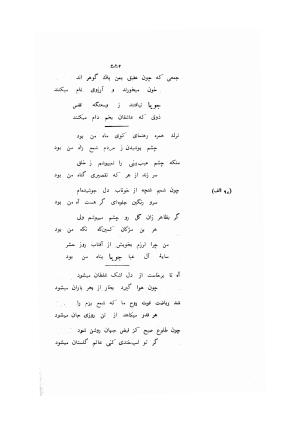 جمعی که چون عقیق یمن پاک گوهر اند
خون میخورند و آرزوی نام میکنند
جویا نیافتند ز وستگه قفس
ذوقی که عاشقان بخم دام میکنند
ترك عمره رهنمای کوی ماه من بود
چشم پوشیدن ز مردم شمع راه من بود
منکه چشم عیب بینی را نمیپوشم ز خلق
سر زند از هر که تقصیری گناه من بود
چون نسیم غنچه از خوناب دل جوشیده‌ام
سرو رنگین جلوه‌ای گر هست آه من بود
(ب الف)
گر بظاهر زان گل رو چشم میپوشم ولی
هر بن مژگان کمینگاه نگه من بود
من چرا لرزم بخویش از آفتاب روز حشر
سایۀ آل عبا جویا پناه من بود
آه تا برخاست از دل اشک غلطان میشود
چون هوا گیرد بخار از بحر باران میشود
شد ریاضت قوت روح ما که شمع بزم را
هر قدر میکاهد از تن روزی جان میشود
چون طلوع صبح کز فیض جهان روشن شود
گر تو لب خندی کنی عالم گلستان میشود